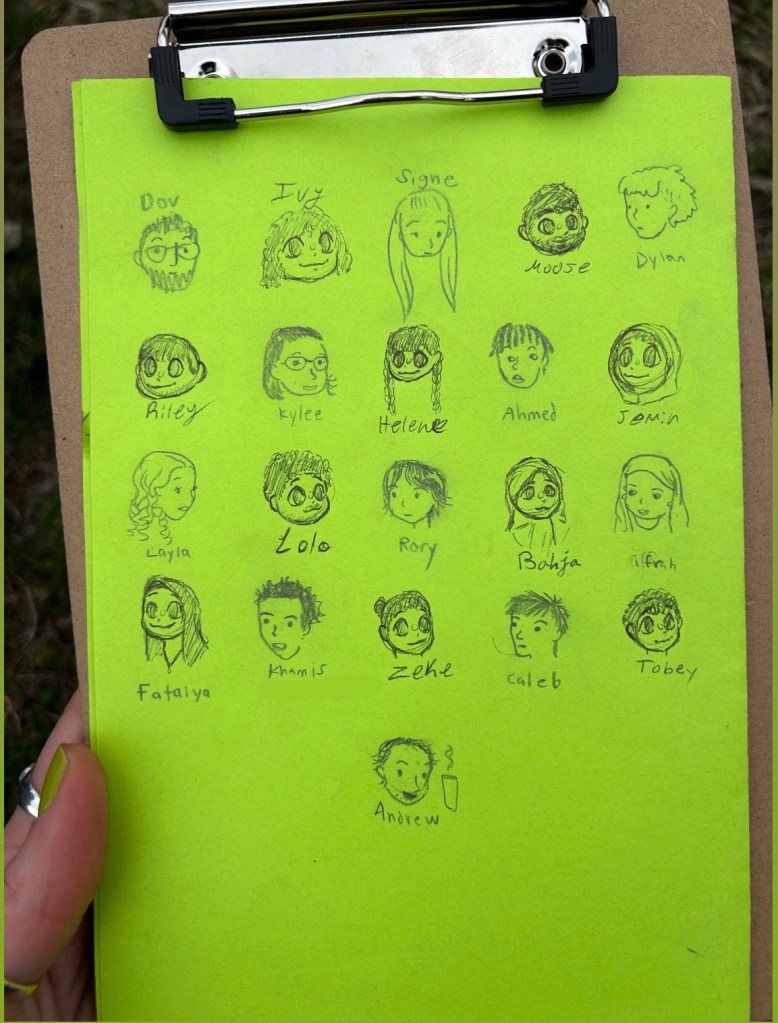 Dov
Ivy
Signe
Moose
Dylan
Riley
Kylee
Helene
Ahmed
Jemin
Layla
Lolo
Rory
Bahja
Ifrah
Fataiya
Khamis
Zeke
Caleb
Tobey
Andrew